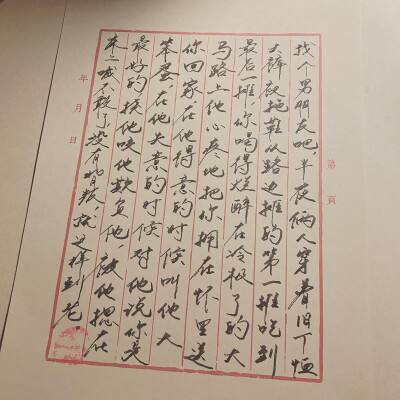 第 页
找个男朋友吧,半夜俩人穿着旧T恤
大裤衩拖鞋从路边摊的第一摊吃到
最后一摊,你喝得烂醉在冷极了的大
马路上他心疼地把你拥在怀里送
你回家在他得意的时候叫他大
笨蛋,在他失意的时候对他说你是
最好的挨他咬他欺负他,被他摁在
床上喊不敢了没有背叛就这样到老.
年 月 日